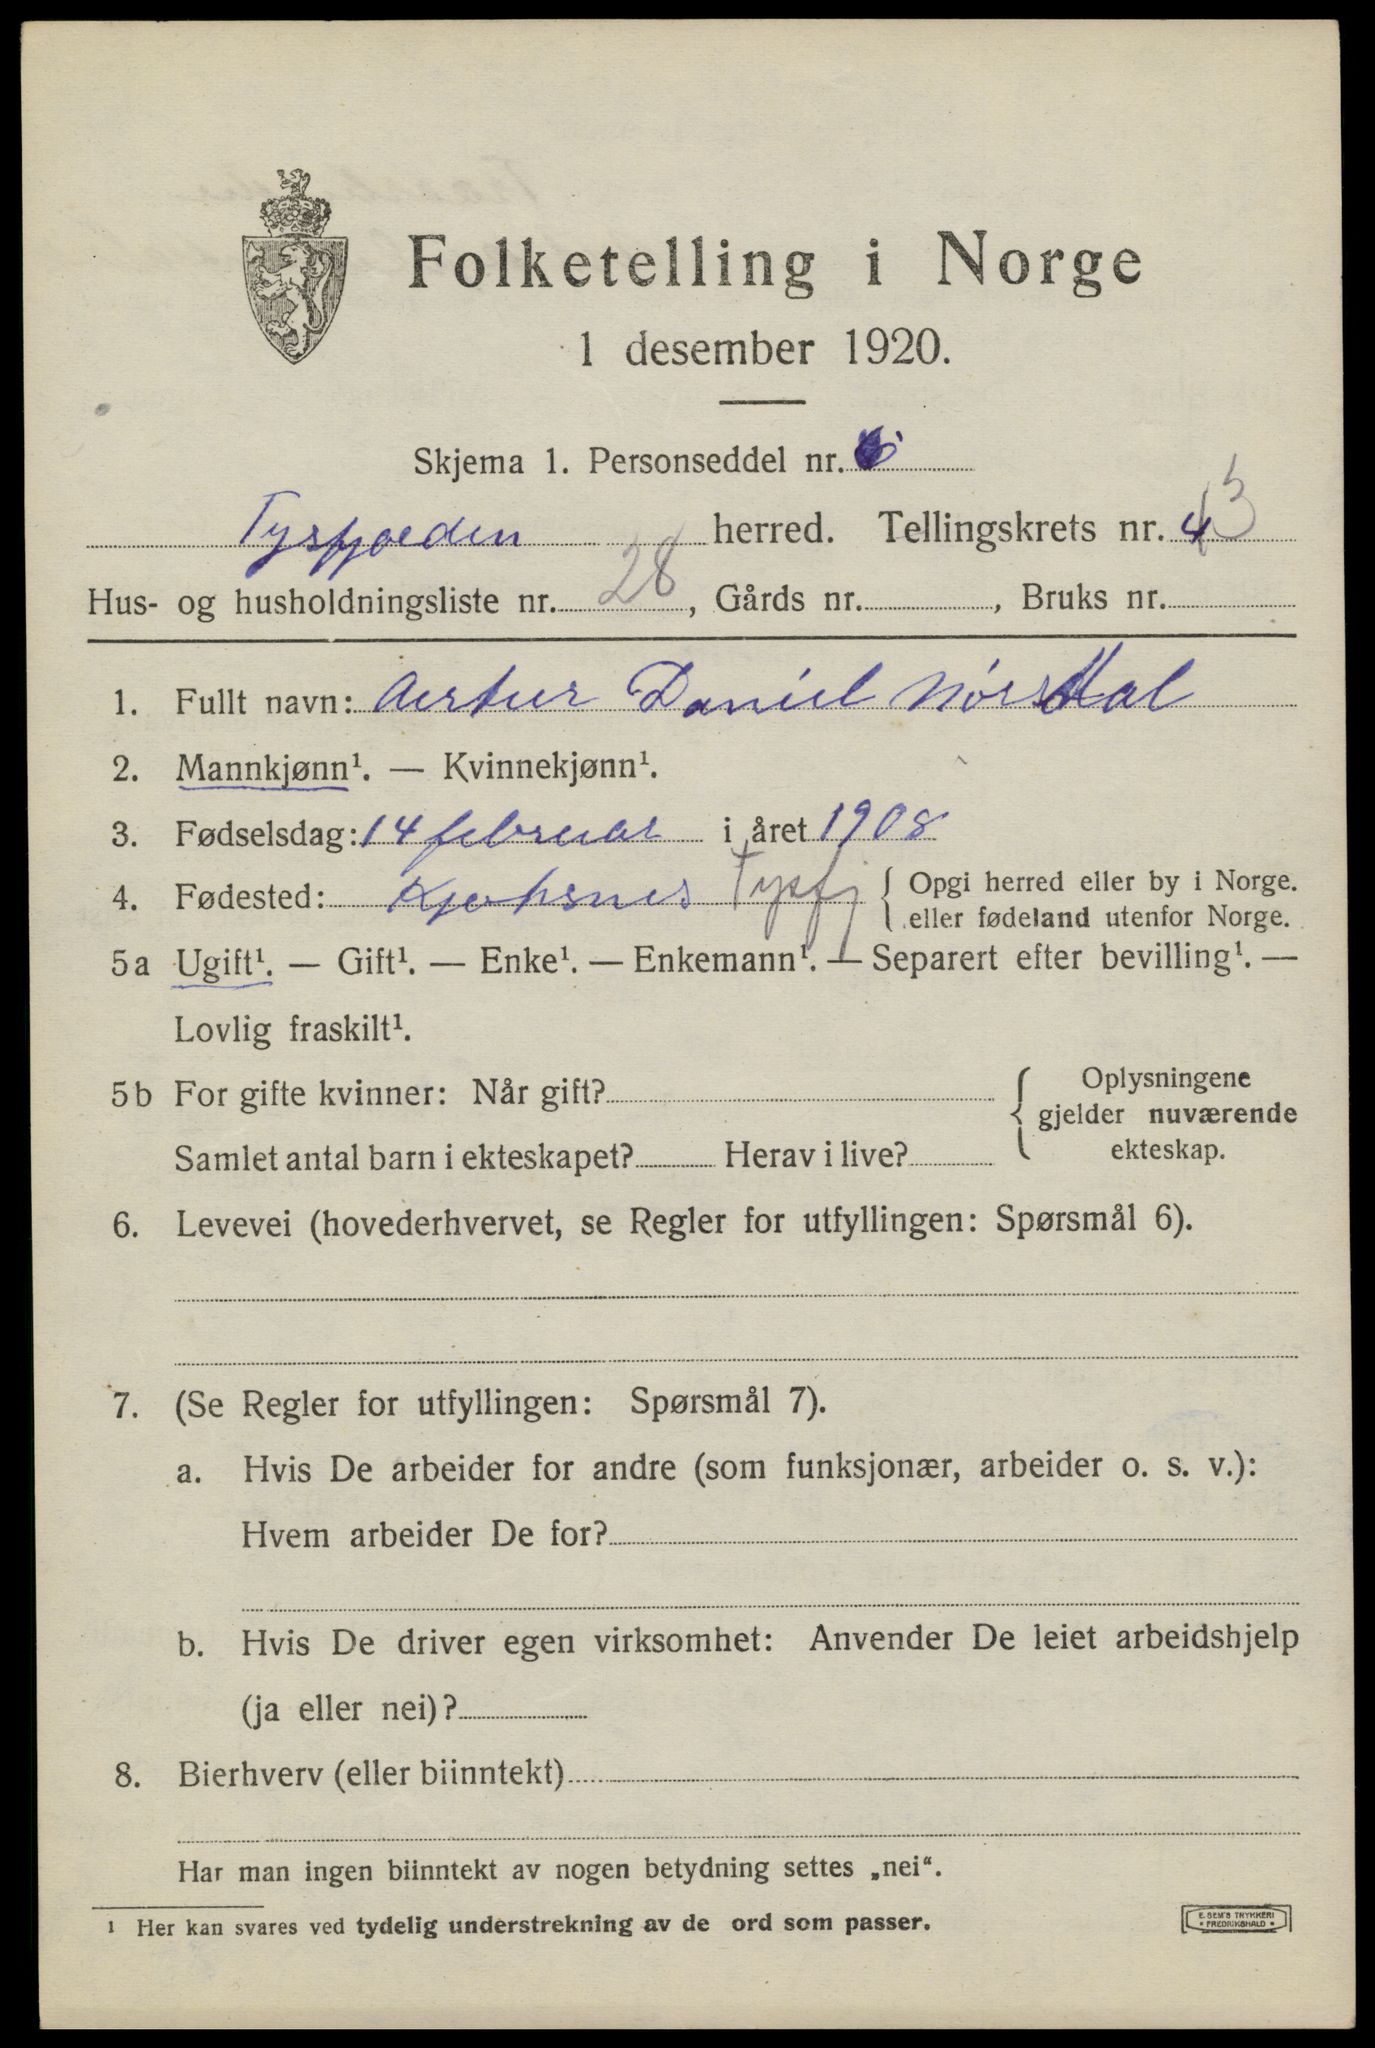 Folketelling i Norge
1 desember 1920.
Skjema 1. Personseddel nr.
Tysfjorden herred. Tellingskrets nr. 4 3
Hus- og husholdningsliste nr. 28, Gårds nr. , Bruks nr.
1. Fullt navn: Daniel
2. Mannkjønn¹. — Kvinnekjønn¹.
3. Fødselsdag: 14 februar i året 1908
4. Fødested: Tysfj { Opgi herred eller by i Norge.
eller fødeland utenfor Norge.
5a Ugift¹. — Gift¹. — Enke¹. — Enkemann¹. — Separert efter bevilling¹. —
Lovlig fraskilt¹.
5b For gifte kvinner: Når gift?
Samlet antal barn i ekteskapet? Herav i live?
{ Oplysningene
gjelder nuværende
ekteskap.
6. Levevei (hovederhvervet, se Regler for utfyllingen: Spørsmål 6).
7. (Se Regler for utfyllingen: Spørsmål 7).
a. Hvis De arbeider for andre (som funksjonær, arbeider o. s. v.):
Hvem arbeider De for?
b. Hvis De driver egen virksomhet: Anvender De leiet arbeidshjelp
(ja eller nei)?
8. Bierhverv (eller biinntekt)
Har man ingen biinntekt av nogen betydning settes „nei“.
¹ Her kan svares ved tydelig understrekning av de ord som passer.
E. SEM'S TRYKKERI
• FREDRIKSHALD •